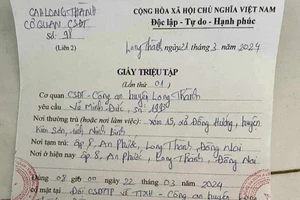 CALONG THÀNH
CƠ QUAN CSĐT
Số: 98
(Liên 2)
CỘNG HÒA XÃ HỘI CHỦ NGHĨA VIỆT NAM
Độc lập - Tự do - Hạnh phúc
Long Thành, ngày 21 tháng 3 năm 2024
GIẤY TRIỆU TẬP
(Lần thứ 01)
Cơ quan CSĐT - Công an huyện Long Thành
yêu cầu Vũ Minh Đức, số: 1989
Nơi thường trú (hoặc nơi làm việc): xóm 15, xã Đồng Hướng, huyện
Kim Sơn, tỉnh Ninh Bình
Nơi tạm trú: ấp 8, An Phước, Long Thành, Đồng Nai
Nơi ở hiện nay ấp 8, An Phước, Long Thành, Đồng Nai
Đúng 08 giờ 00 ngày 22 tháng 03 năm 2024
có mặt tại Đội CSĐTTP về TTXH - Công an huyện